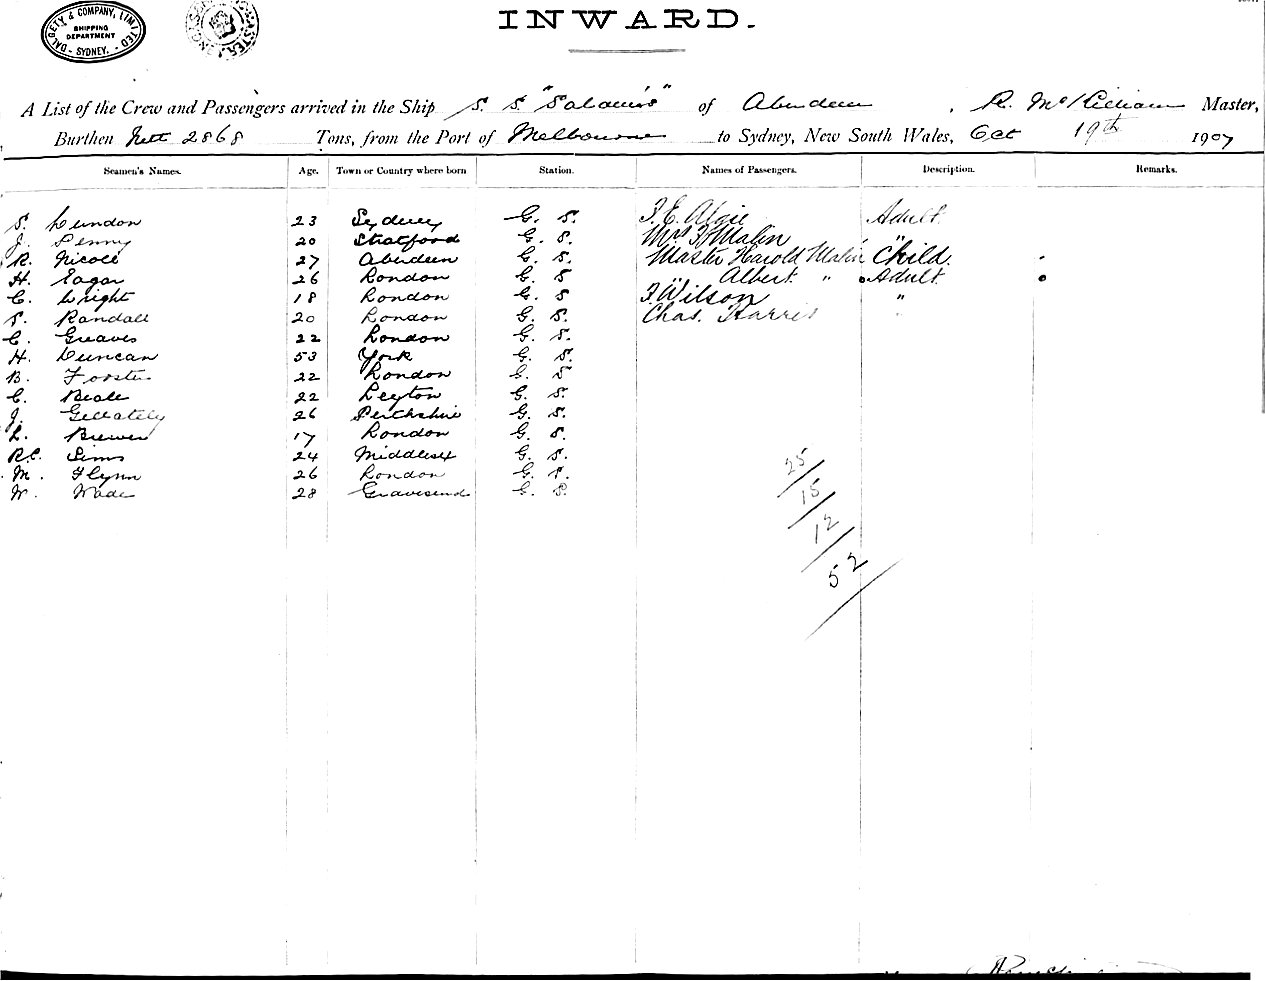 DALGETY & COMPANY, LIMITED
SHIPPING DEPARTMENT
SYDNEY.
INWARD.
A List of the Crew and Passengers arrived in the Ship S. S. "Salamis" of Aberdeen, R. McKilliam Master,
Burthen Nett 2868 Tons, from the Port of Melbourne to Sydney, New South Wales, Oct 19th 1907
Seamen's Names. Age. Town or Country where born Station. Names of Passengers. Description. Remarks.
S. Lundon 23 Sydney G. S. F. E. Algie Adult
J. Penny 20 Stratford G. S. Mrs F. Malin "
R. Nicoll 27 Aberdeen G. S. Master Harold Malin Child.
H. Eagar 26 London G. S " Albert " Adult
C. Wright 18 London G. S F Wilson "
S. Randall 20 London G. S. Chas. Harris "
C. Greaves 22 London G. S.
H. Duncan 53 York G. S.
B. Forster 22 London G. S
C. Beale 22 Leyton G. S.
J. Gellately 26 Perthshire G. S.
L. Brewer 17 London G. S.
R.C. Sims 24 Middlesex G. S.
M. Flynn 26 London G. S.
W. Wade 28 Gravesend G. S.
25
15
12
52